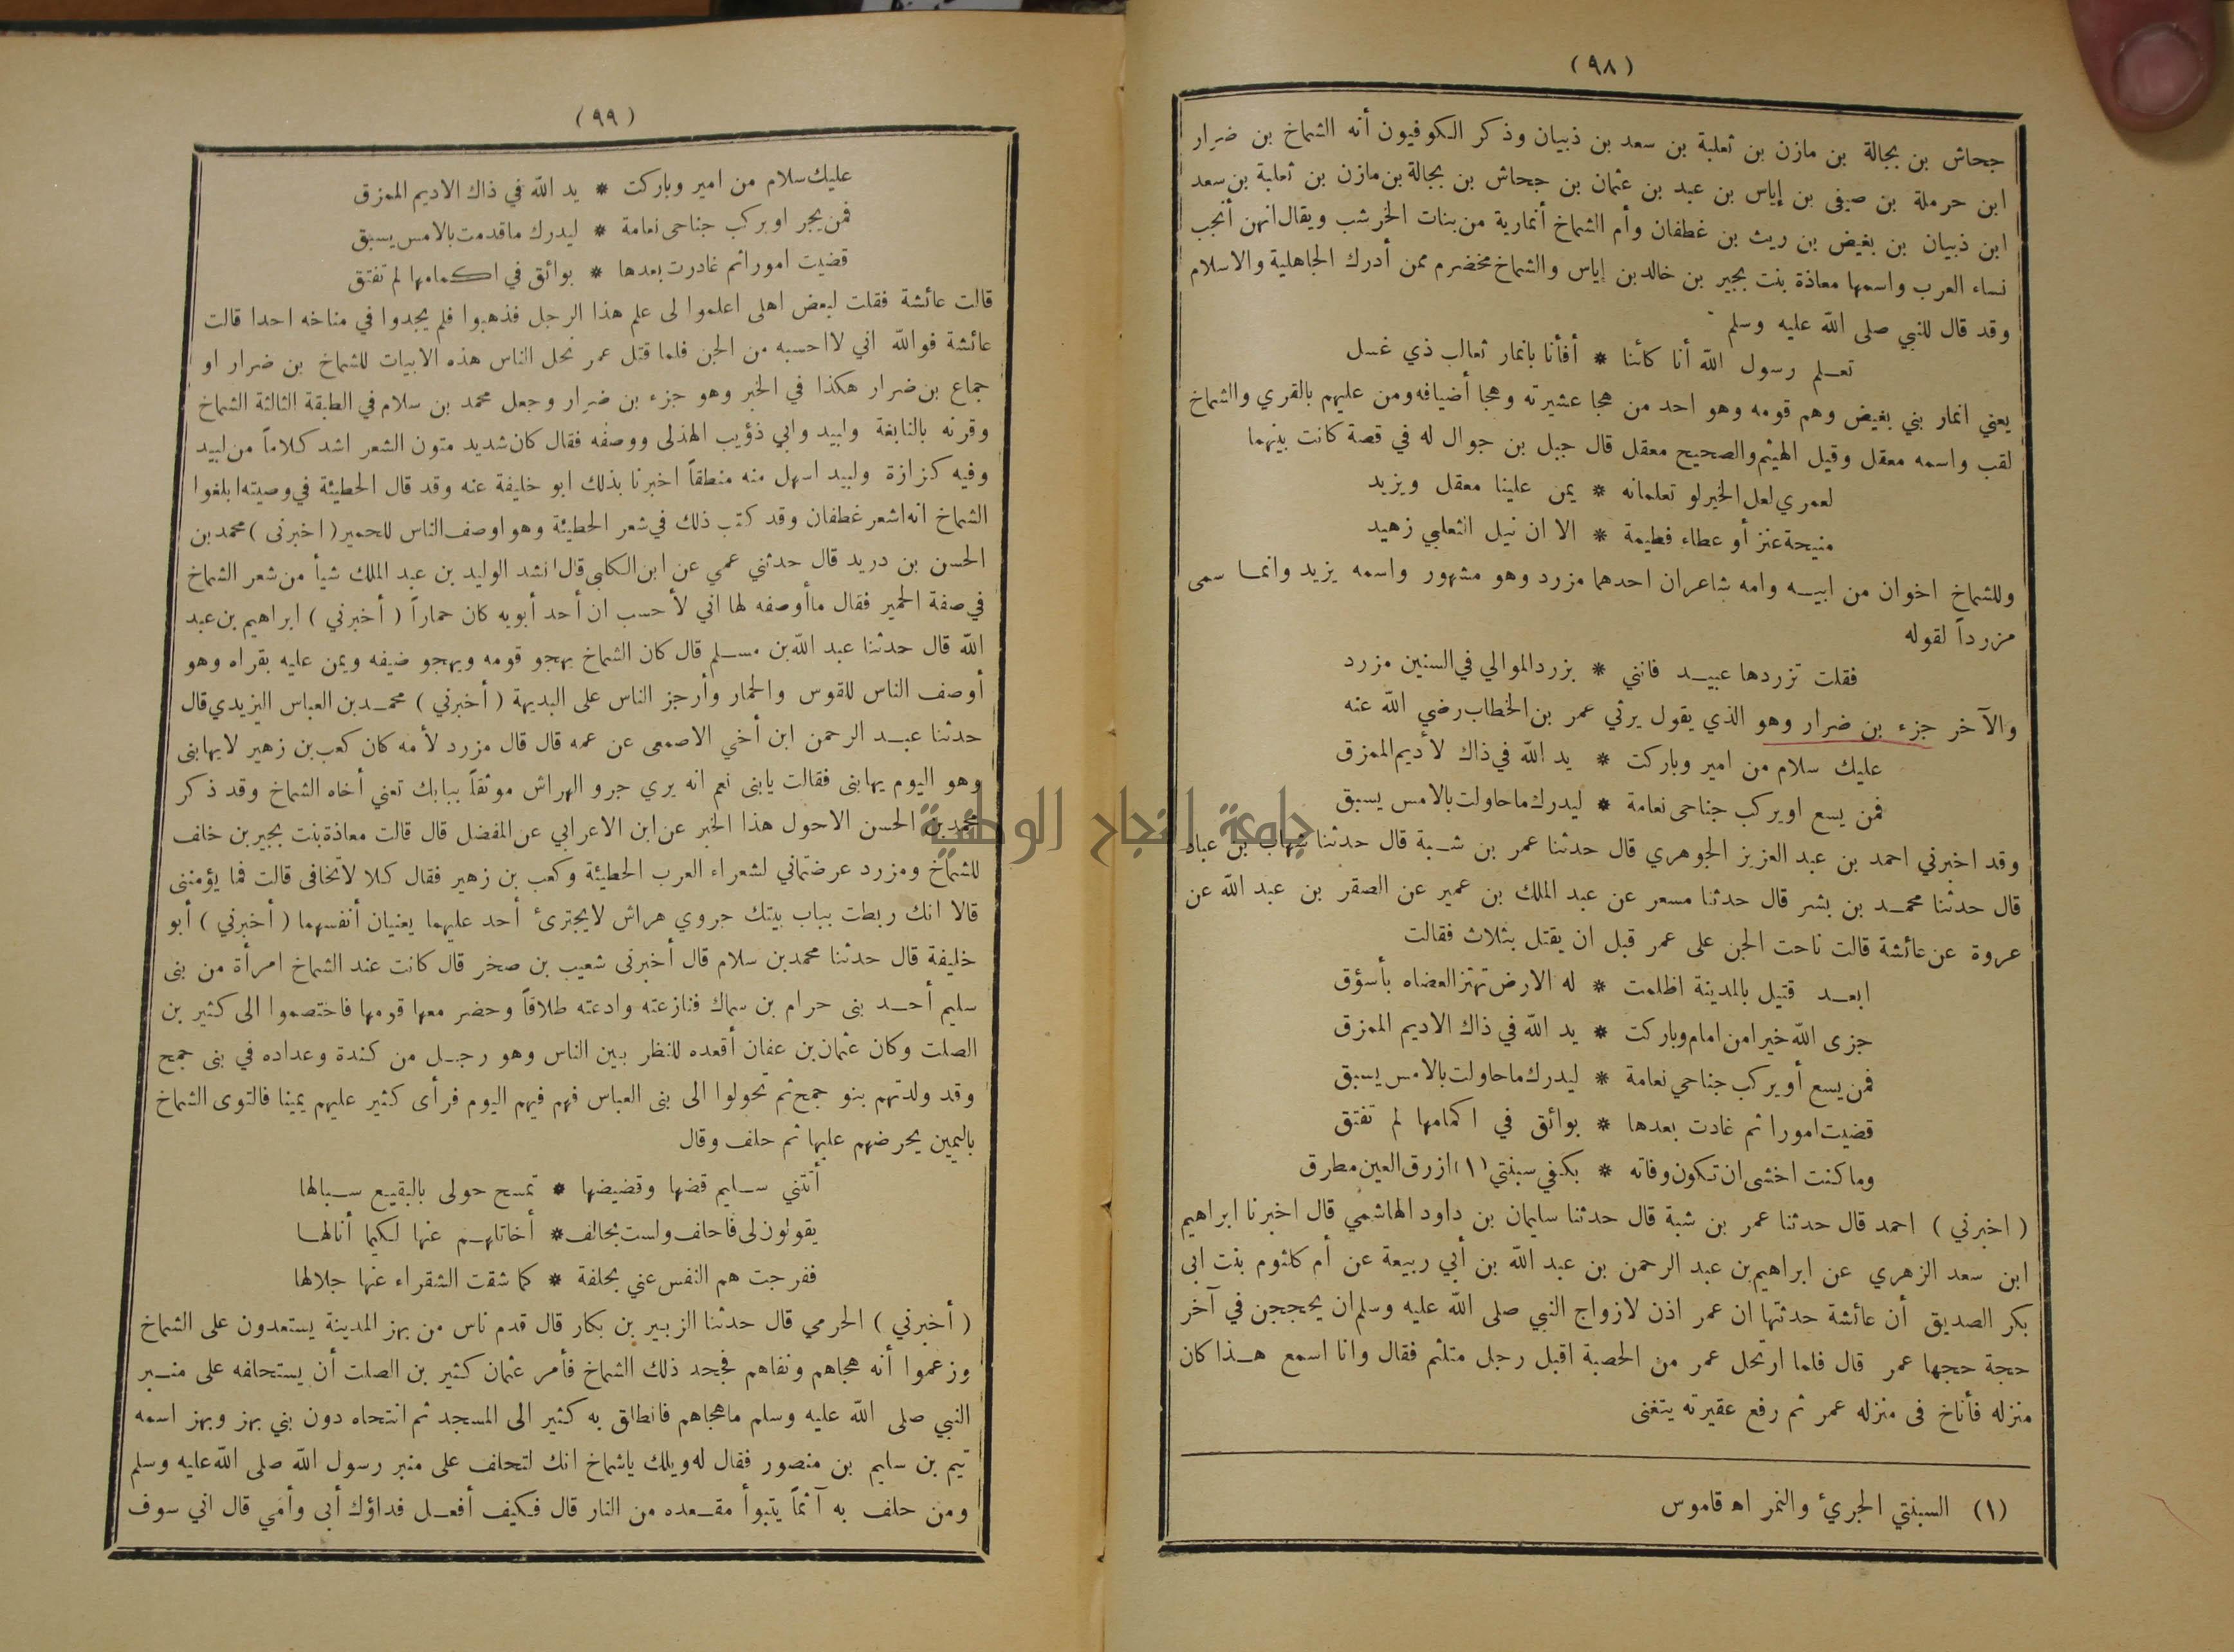 (٩٨)
جحاش بن بجالة بن مازن بن ثعلبة بن سعد بن ذبيان وذكر الكوفيون أنه الشماخ بن ضرار
ابن حرملة بن صيفى بن إياس بن عبد بن عثمان بن جحاش بن بجالة بن مازن بن ثعلبة بن سعد
ابن ذبيان بن بغيض بن ريث بن غطفان وأم الشماخ أنمارية من بنات الخرشب ويقال انهن أنجب
نساء العرب واسمها معاذة بنت بجير بن خالد بن إياس والشماخ مخضرم ممن أدرك الجاهلية والاسلام
وقد قال للنبي صلى الله عليه وسلم
تعلم رسول الله أنا كائنا * أفأنا بانمار ثعالب ذي غسل
يعني انمار بني بغيض وهم قومه وهو احد من هجا عشيرته وهجا أضيافه ومن عليهم بالقري والشماخ
لقب واسمه معقل وقيل الهيثم والصحيح معقل قال جبل بن جوال له في قصة كانت بينهما
لعمري لعل الخير لو تعلمانه * يمن علينا معقل ويزيد
منيحة عنز أو عطاء فطيمة * الا ان نيل الثعلبي زهيد
وللشماخ اخوان من ابيه وامه شاعران احدهما مزرد وهو مشهور واسمه يزيد وانما سمى
مزرداً لقوله
فقلت تزردها عبيد فانني * بزرد الموالي في السنين مزرد
والآخر جزء بن ضرار وهو الذي يقول يرثي عمر بن الخطاب رضي الله عنه
عليك سلام من امير وباركت * يد الله في ذاك لأديم الممزق
فمن يسع او يركب جناحى نعامة * ليدرك ما حاولت بالامس يسبق
وقد اخبرني احمد بن عبد العزيز الجوهري قال حدثنا عمر بن شبة قال حدثنا شهاب بن عباد
قال حدثنا محمد بن بشر قال حدثنا مسعر عن عبد الملك بن عمير عن الصقر بن عبد الله عن
عروة عن عائشة قالت ناحت الجن على عمر قبل ان يقتل بثلاث فقالت
ابعد قتيل بالمدينة اظلمت * له الارض تهتز العضاه بأسؤق
جزى الله خيرا من امام وباركت * يد الله في ذاك الاديم الممزق
فمن يسع أو يركب جناحي نعامة * ليدرك ما حاولت بالامس يسبق
قضيت امورا ثم غادت بعدها * بوائق في اكمامها لم تفتق
وما كنت اخشى ان تكون وفاته * بكفي سبنتي (١) ازرق العين مطرق
( اخبرني ) احمد قال حدثنا عمر بن شبة قال حدثنا سليمان بن داود الهاشمي قال اخبرنا ابراهيم
ابن سعد الزهري عن ابراهيم بن عبد الرحمن بن عبد الله بن أبي ربيعة عن أم كلثوم بنت ابى
بكر الصديق أن عائشة حدثتها ان عمر اذن لازواج النبي صلى الله عليه وسلم ان يحججن في آخر
حجة حجها عمر قال فلما ارتحل عمر من الحصبة اقبل رجل متلثم فقال وانا اسمع هذا كان
منزله فأناخ فى منزله عمر ثم رفع عقيرته يتغنى
(١) السبنتي الجريئ والنمر اه قاموس
(٩٩)
عليك سلام من امير وباركت * يد الله في ذاك الاديم الممزق
فمن يجر او يركب جناحى نعامة * ليدرك ما قدمت بالامس يسبق
قضيت امورا ثم غادرت بعدها * بوائق في اكمامها لم تفتق
قالت عائشة فقلت لبعض اهلى اعلموا لى علم هذا الرجل فذهبوا فلم يجدوا في مناخه احدا قالت
عائشة فوالله اني لا احسبه من الجن فلما قتل عمر نحل الناس هذه الابيات للشماخ بن ضرار او
جماع بن ضرار هكذا في الخبر وهو جزء بن ضرار وجعل محمد بن سلام في الطبقة الثالثة الشماخ
وقرنه بالنابغة ولبيد وابي ذؤيب الهذلى ووصفه فقال كان شديد متون الشعر اشد كلاماً من لبيد
وفيه كزازة ولبيد اسهل منه منطقاً اخبرنا بذلك ابو خليفة عنه وقد قال الحطيئة في وصيته ابلغوا
الشماخ انه اشعر غطفان وقد كتب ذلك في شعر الحطيئة وهو اوصف الناس للحمير ( اخبرنى ) محمد بن
الحسن بن دريد قال حدثني عمي عن ابن الكلبى قال انشد الوليد بن عبد الملك شيأ من شعر الشماخ
في صفة الحمير فقال ما أوصفه لها اني لأحسب ان أحد أبويه كان حماراً ( أخبرني ) ابراهيم بن عبد
الله قال حدثنا عبد الله بن مسلم قال كان الشماخ يهجو قومه ويهجو ضيفه ويمن عليه بقراه وهو
أوصف الناس للقوس والحمار وأرجز الناس على البديهة ( أخبرني ) محمد بن العباس اليزيدي قال
حدثنا عبد الرحمن ابن أخي الاصمعى عن عمه قال قال مزرد لأمه كان كعب بن زهير لا يهابنى
وهو اليوم يهابنى فقالت يابنى نعم انه يري جرو الهراش موثقاً ببابك تعني أخاه الشماخ وقد ذكر
محمد بن الحسن الاحول هذا الخبر عن ابن الاعرابي عن المفضل قال قالت معاذة بنت بجير بن خلف
للشماخ ومزرد عرضتماني لشعراء العرب الحطيئة وكعب بن زهير فقال كلا لاتخافى قالت فما يؤمننى
قالا انك ربطت بباب بيتك جروي هراش لايجترئ أحد عليهما يعنيان أنفسهما ( أخبرني ) أبو
خليفة قال حدثنا محمد بن سلام قال أخبرنى شعيب بن صخر قال كانت عند الشماخ امرأة من بنى
سليم أحد بنى حرام بن سماك فنازعته وادعته طلاقاً وحضر معها قومها فاختصموا الى كثير بن
الصلت وكان عثمان بن عفان أقعده للنظر بين الناس وهو رجل من كندة وعداده في بنى جمح
وقد ولدتهم بنو جمح ثم تحولوا الى بنى العباس فهم فيهم اليوم فرأى كثير عليهم يمينا فالتوى الشماخ
باليمين يحرضهم عليها ثم حلف وقال
أتتني سليم قضها وقضيضها * تمسح حولى بالبقيع سبالها
يقولون لى فاحلف ولست بحالف * أخاتلهم عنها لكيما أنالها
ففرجت هم النفس عني بحلفة * كما شقت الشقراء عنها جلالها
( أخبرني ) الحرمي قال حدثنا الزبير بن بكار قال قدم ناس من بهز المدينة يستعدون على الشماخ
وزعموا أنه هجاهم ونفاهم فجحد ذلك الشماخ فأمر عثمان كثير بن الصلت أن يستحلفه على منبر
النبي صلى الله عليه وسلم ماهجاهم فانطلق به كثير الى المسجد ثم انتحاه دون بني بهز وبهز اسمه
تيم بن سليم بن منصور فقال له ويلك ياشماخ انك لتحلف على منبر رسول الله صلى الله عليه وسلم
ومن حلف به آثماً يتبوأ مقعده من النار قال فكيف أفعل فداؤك أبى وأمي قال اني سوف
جامعة النجاح الوطنية